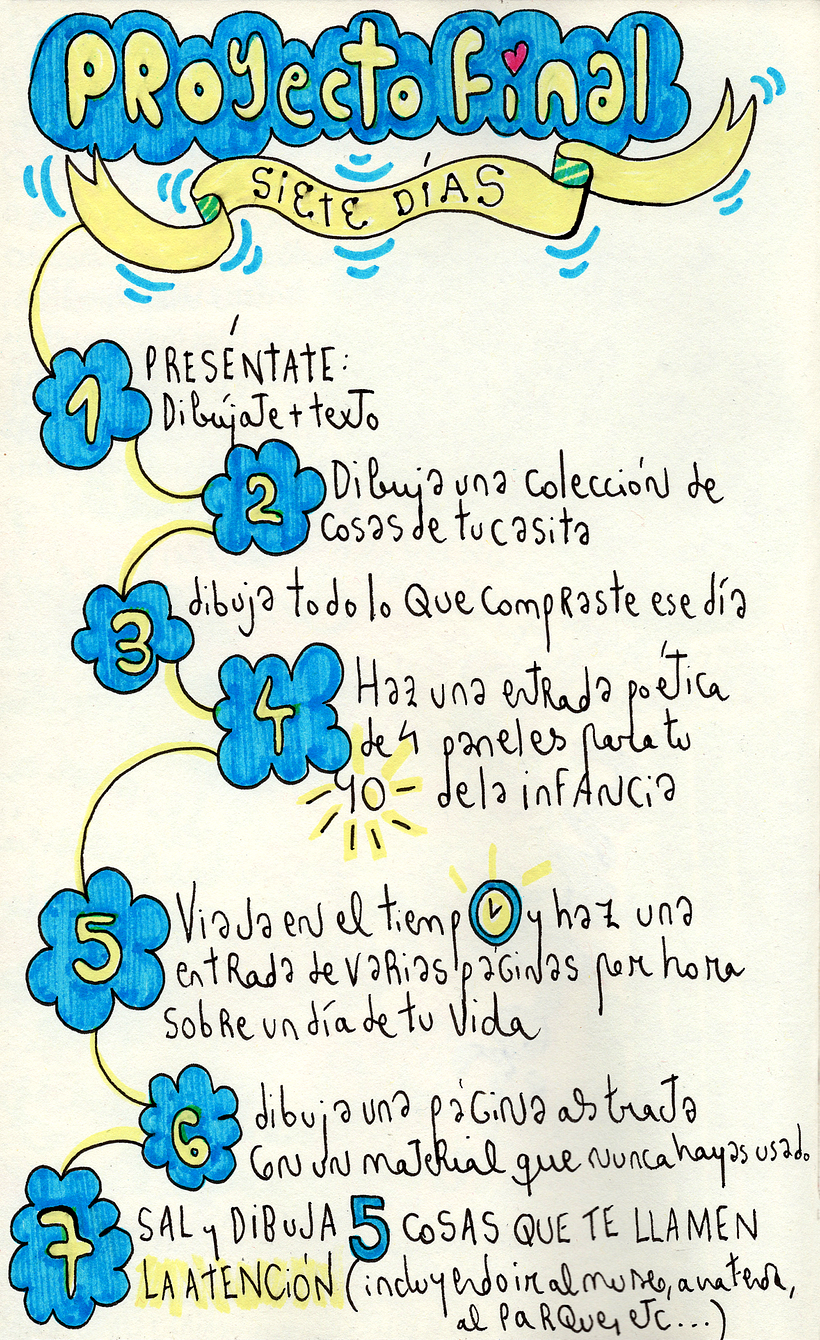 PRoyecto Final
SiEtE DÍAS
1 PRESÉNTATE:
Dibújate + texto
2 Dibuja una colección de
cosas de tu casita
3 dibuja todo lo Que comPRaste ese día
4 Haz una entRada poética
de 4 paneles para tu
yo de la infancia
5 Viaja en el tiempo y haz una
entRada de vaRias páGinas por hora
sobRe un día de tu vida
6 dibuja una páGina abstracta
con un mateRial que nunca hayas usado
7 SAL y DiBUJA 5 COSAS QUE TE LLAMEN
LA ATENCIÓN (incluyendo ir al museo,
al PaRQue, etc...)